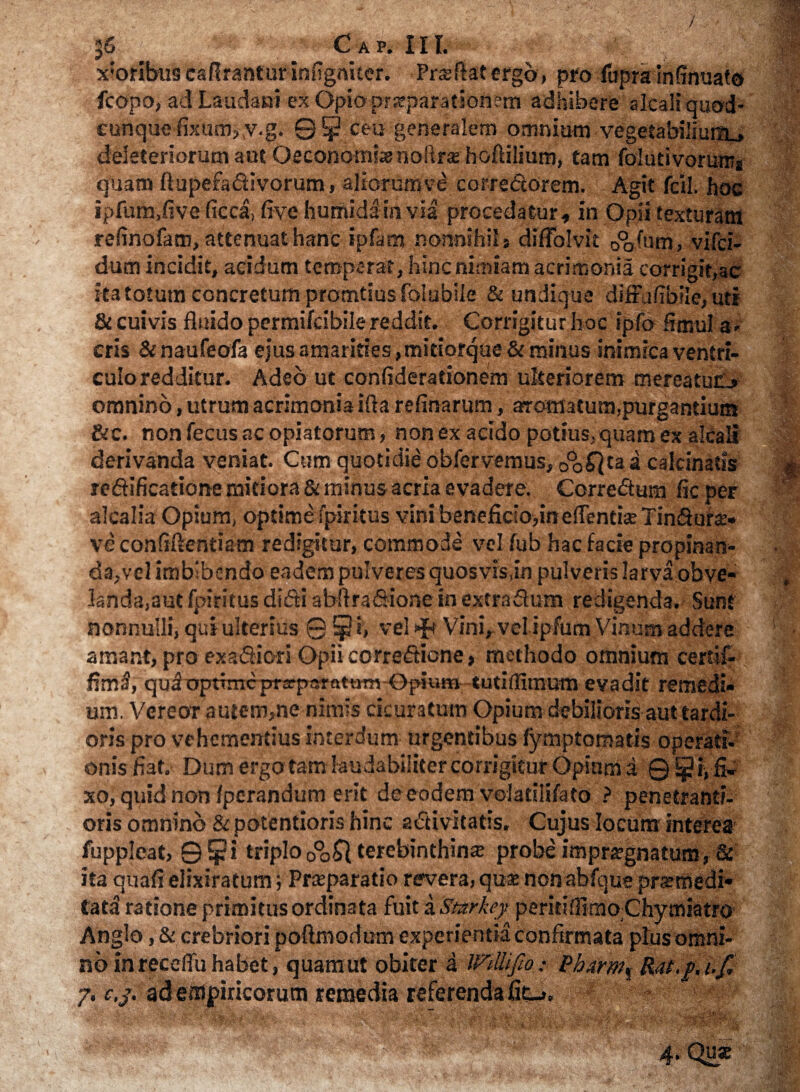 36 CAP. III.
xioribus castrantur insigniter. Præstat ergo, pro supra insinuato
scopo, ad Laudani ex Opio præparationem adhibere alcali quod-
cunque fixum, v.g. 🜔 🜿 ceu generalem omnium vegetabilium,
deleteriorum aut Oeconomiæ nostræ hostilium, tam solutivorum,
quam stupefactivorum, aliorumve correctorem. Agit scil. hoc
ipsum, sive sicca, sive humida in via procedatur, in Opii texturam
resinosam, attenuat hanc ipsam nonnihil, dissolvit o%sum, visci-
dum incidit, acidum temperat, hinc nimiam acrimonia corrigit, ac
ita totum concretum promtius solubile & undique diffusibile, uti
& cuivis fluido permiscibile reddit. Corrigitur hoc ipso simul a-
cris & nauseosa ejus amarities, mitiorque & minus inimica ventri-
culo redditur. Adeò ut considerationem ulteriorem mereatur,
omninò, utrum acrimonia ista resinarum, aromatum, purgantium
&c. non secus ac opiatorum, non ex acido potius, quam ex alcali
derivanda veniat. Cum quotidie observemus, o%🜓ta à calcinatis
rectificatione mitiora & minus acria evadere. Correctum sic per
alcalia Opium, optime spiritus vini beneficio, in essentiæ Tincturæ-
ve consistentiam redigitur, commodè vel sub hac facie propinan-
da, vel imbibendo eadem pulveres quosvis, in pulveris larva obve-
landa, aut spiritus dicti abstractione in extractum redigenda. Sunt
nonnulli, qui ulterius 🜔 🜿i, vel 🜊 Vini, vel ipsum Vinum addere
amant, pro exactiori Opii correctione, methodo omnium certis-
simâ, quâ optimè præparatum Opium tutissimum evadit remedi-
um. Vereor autem, ne nimis cicuratum Opium debilioris aut tardi-
oris pro vehementius interdum urgentibus symptomatis operati-
onis fiat. Dum ergo tam laudabiliter corrigitur Opium à 🜔 🜿i, fi-
xo, quid non sperandum erit de eodem volatilisato ? penetranti-
oris omninò & potentioris hinc activitatis. Cujus locum interea
suppleat, 🜔 🜿i triplo o%🜓 terebinthinæ probè imprægnatum, &
ita quasi elixiratum; Præparatio revera, quæ non absque præmedi-
tatâ ratione primitus ordinata fuit à Starkey peritissimo Chymiatro
Anglo, & crebriori postmodum experientiâ confirmata plus omni-
nò in recessu habet, quam ut obiter à Willisio: Pharm. Rat. p. i. s.
7. c. 3. ad empiricorum remedia referenda sit.
4. Quæ